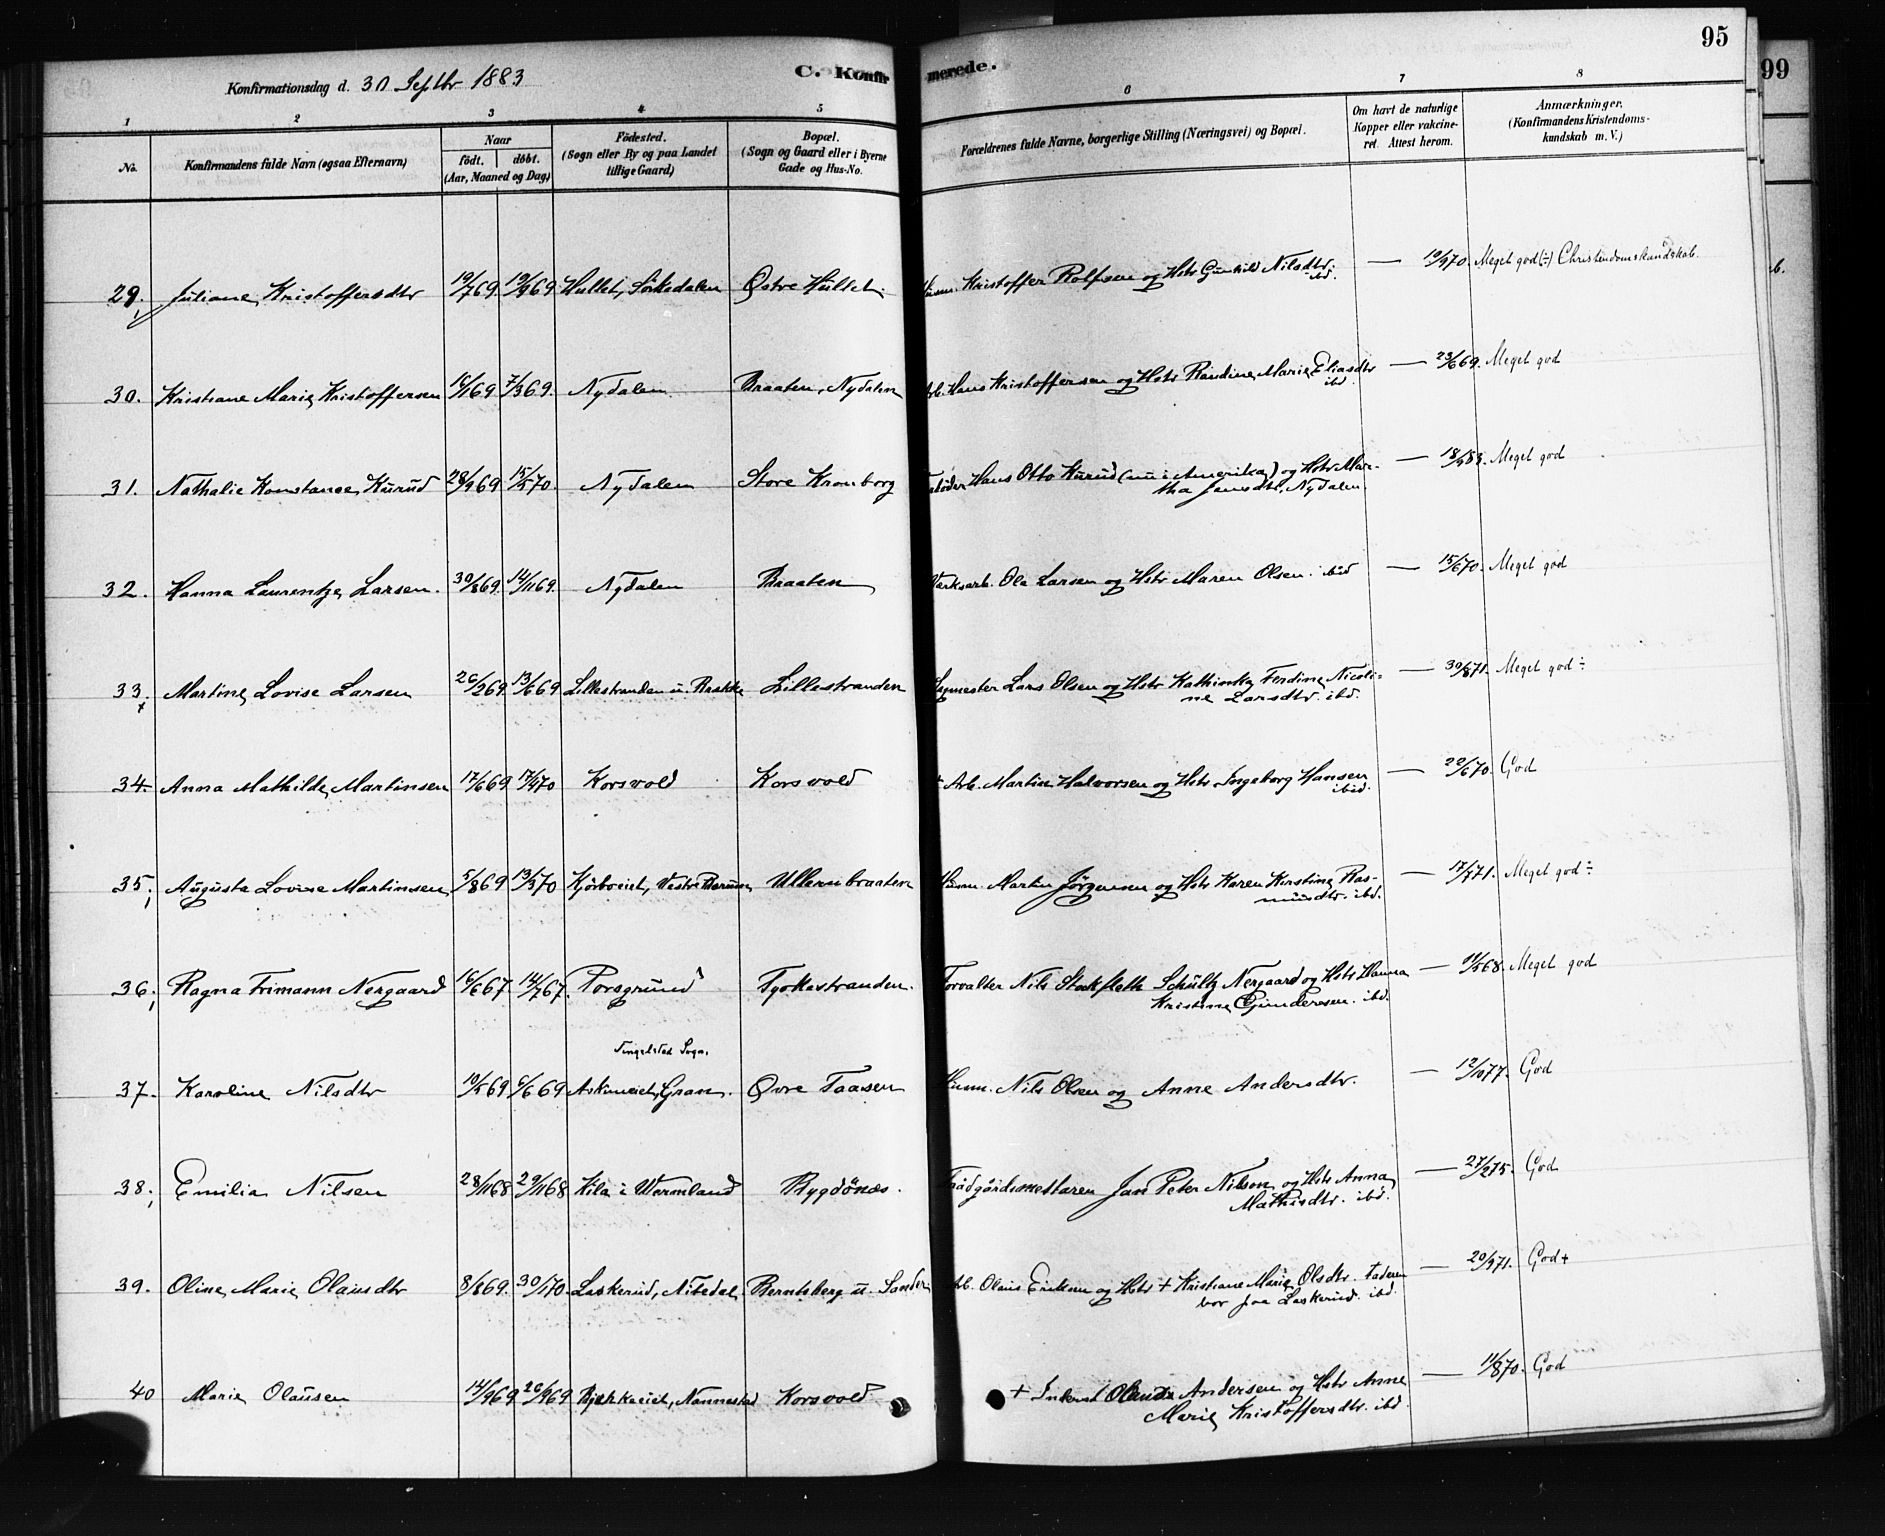 95
99
Konfirmationsdag d. 30 Septbr 1883
C. Konfirmerede.
1 2 3 4 5 6 7 8
No.
Konfirmandens fulde Navn (ogsaa Efternavn)
Naar
født. døbt.
(Aar, Maaned og Dag)
Fødested.
(Sogn eller By og paa Landet
tillige Gaard)
Bopæl.
(Sogn og Gaard eller i Byerne
Gade og Hus-No.
Forældrenes fulde Navne, borgerlige Stilling (Næringsvei) og Bopæl.
Om havt de naturlige
Kopper eller vakcine-
ret. Attest herom.
Anmærkninger.
(Konfirmandens Kristendoms-
kundskab m. V.)
29. Juliane Kristoffersdtr 19/7 69 19/9 69 Hullet, Sørkedalen Østre Hullet. Husm. Kristoffer Rolfsen og Hstr Gunhild Nilsdtr. — 19/9 70. Meget god (÷) Christendomskundskab.
ibd.
30. Kristiane Marie Kristoffersen 16/1 69 7/3 69. Nydalen Braaten, Nydalen Arb. Hans Kristoffersen og Hstr Randine Marie Eliasdtr — 23/6 69. Meget god
ibd.
31. Nathalie Konstance Kurud 28/9 69 15/5 70. Nydalen Store Kronborg Hans Otto Kurud (nu i Amerika) og Hstr Mar- — 18/9 83. Meget god
tha Jensdtr, Nydalen.
32. Hanna Laurentze Larsen. 30/8 69. 14/11 69. Nydalen Braaten Værksarb. Ole Larsen og Hstr Maren Olsen. ibid — 15/6 70. Meget god
33. Martine Lovise Larsen 26/2 69. 13/6 69. Lillestranden u. Bakke Lillestranden Lars Olsen og Hstr Kathinka Ferdine Nicoli- — 30/8 71. Meget god ÷
ne Larsdtr. ibd.
34. Anna Mathilde Martinsen 17/6 69 17/4 70 Korsvold Korsvold + Arb. Martin Halvorsen og Hstr Ingeborg Hansen — 22/6 70. God
ibid.
35. Augusta Lovise Martinsen 5/8 69 13/3 70 Kjørboeiet, Vestre Bærum Ullernbraaten Husm. Martin Jørgensen og Hstr Karen Kirstine Ras- — 17/9 71. Meget god ÷
musdtr. ibd.
36. Ragna Frimann Nergaard 16/6 67 14/7 67. Porsgrund Tyskestranden. Forvalter Nils Stokfleth Schultz Nergaard og Hstr Hanna — 11/5 68. Meget god
Kristine Gundersen. ibd.
Tingelstad Sogn.
37. Karoline Nilsdtr 10/5 69 6/6 69 Askimeiet, Gran. Øvre Taasen Husm. Nils Olsen og Anne Andersdtr. — 12/10 77. God
38. Emilia Nilsen 28/11 68 29/11 68 Kila i Wermland Bygdønæs. Trädgårdsmästaren Jan Peter Nilson og Hstr Anna — 27/2 75. God
Mathisdtr. ibd.
39. Oline Marie Olausdtr 8/8 69. 30/1 70. Laskerud, Nitedal. Berntsberg u. Sander Arb. Olaus Eriksen og Hstr + Kristiane Marie Olsdtr. Faderen — 20/9 71. God+
bor paa Laskerud. ibd.
40 Marie Olausen 14/9 69 26/9 69 Bjerkeeiet, Nannestad Korsvold + Inderst Olaus Andersen og Hstr Anne — 11/8 70. God
Marie Kristoffersdtr. ibd.